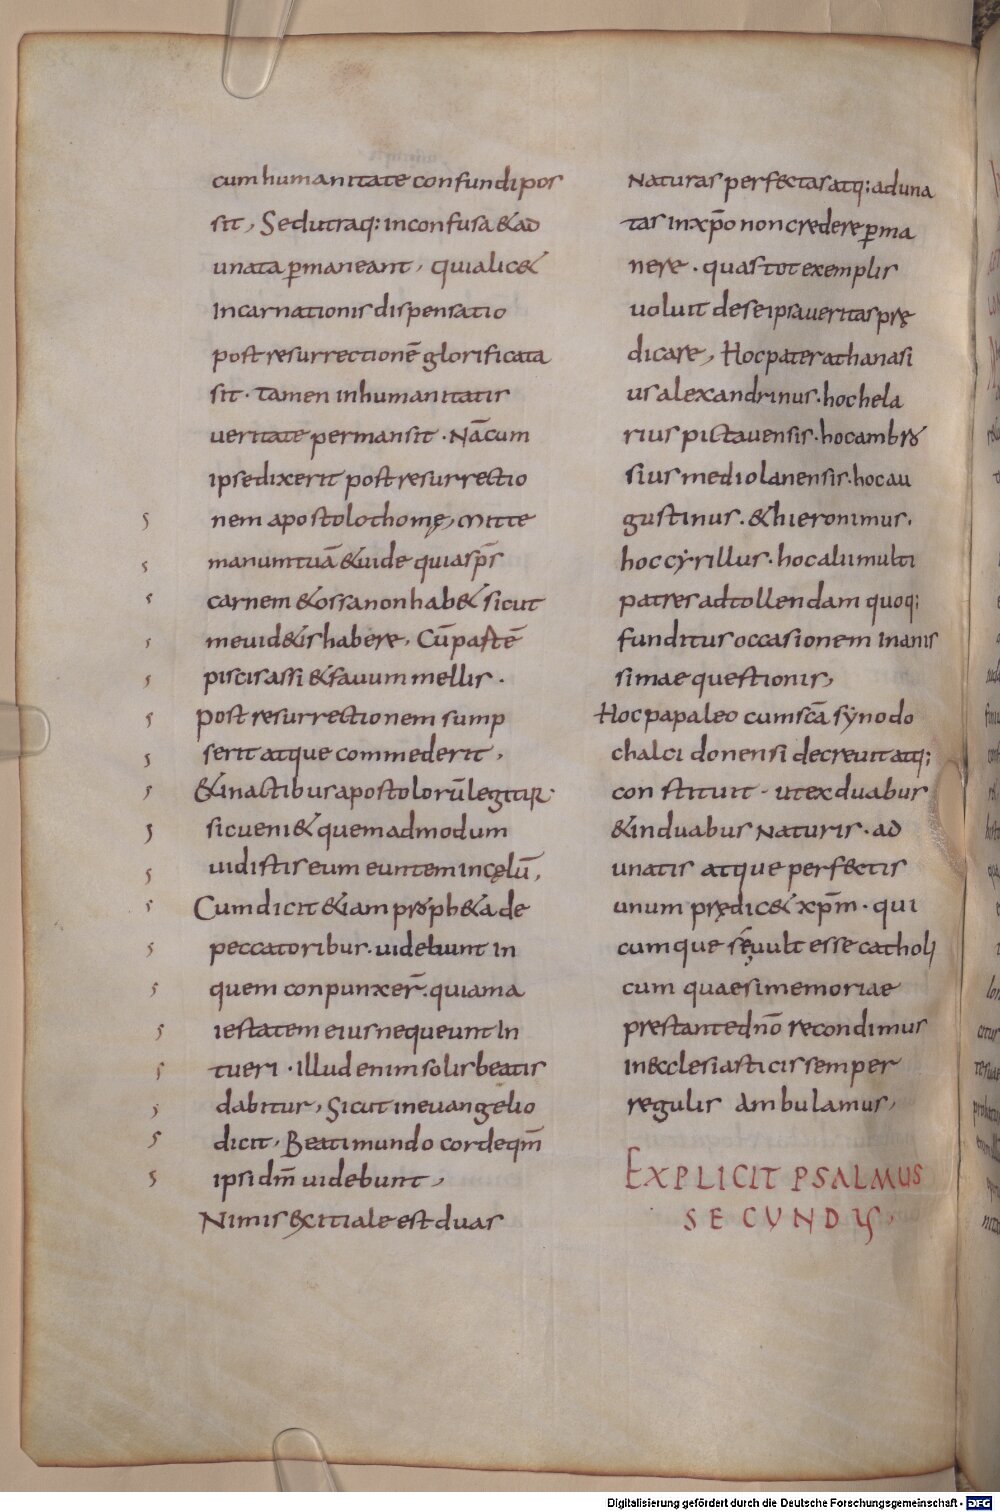 cum humanitate confundi pos
sit, Sed utraq: inconfusa & ad
unata p̱maneant, quia lic&
Incarnationis dispensatio
post resurrectionē glorificata
sit. tamen in humanitatis
veritate permansit. Nā cum
ipse dixerit post resurrectio
nem apostolo thomę, Mitte
manum tuā & uide quia sp̄s
carnem & ossa non hab& sicut
me uid&is habere, Cū pastē
piscis assi & fauum mellis.
Post resurrectionem sump
serit atque commederit,
& in actibus apostolorū legitur.
sic ueni& quemadmodum
uidistis eum euntem in cęlū,
Cum dicit & iam proph&a de
peccatoribus. uidebunt in
quem conpunxer̄. quia ma
iestatem eius nequeunt In
tueri. Illud enim solis beatis
dabitur, Sicut in euangelio
dicit, Beati mundo corde qm̄
ipsi dm̄ uidebunt,
Nimis exitiale est duas
Naturas perfectas atq; aduna
tas in xp̄o non credere p̱ma
nere. quas tot exemplis
uoluit de se ipsa ueritas prę
dicare, Hoc pater athanasi
us alexandrinus. hoc hela
rius pictauensis. hoc ambro
sius mediolanensis. hoc au
gustinus. & hieronimus.
hoc cyrillus. hoc alii multi
patres ad tollendam quoq;
funditus occasionem Inanis
simae questionis,
Hoc papa leo cum scā synodo
chalcidonensi decreuit atq;
constituit. ut ex duabus
& in duabus Naturis. ad
unatis atque perfectis
unum prędic& xp̄m. qui
cumque sę uult esse catholi
cum quae si memoriae
prestante dn̄o recondimus
in ecclesiasticis semper
regulis ambulamus,
EXPLICIT PSALMUS
SECUNDUS,
Digitalisierung gefördert durch die Deutsche Forschungsgemeinschaft - DFG